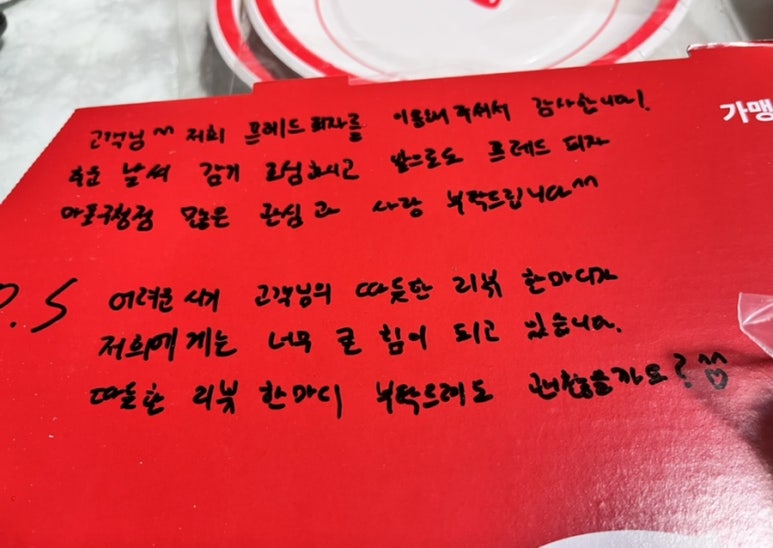 가맹
고객님^^ 저희 프레드피자를 이용해 주셔서 감사합니다!
추운 날씨 감기 조심하시고 앞으로도 프레드 피자
마포구청점 많은 관심과 사랑 부탁드립니다^^
P.S 어려운 시기 고객님의 따듯한 리뷰 한마디가
저희에게는 너무 큰 힘이 되고 있습니다.
따듯한 리뷰 한마디 부탁드려도 괜찮을까요? ^^